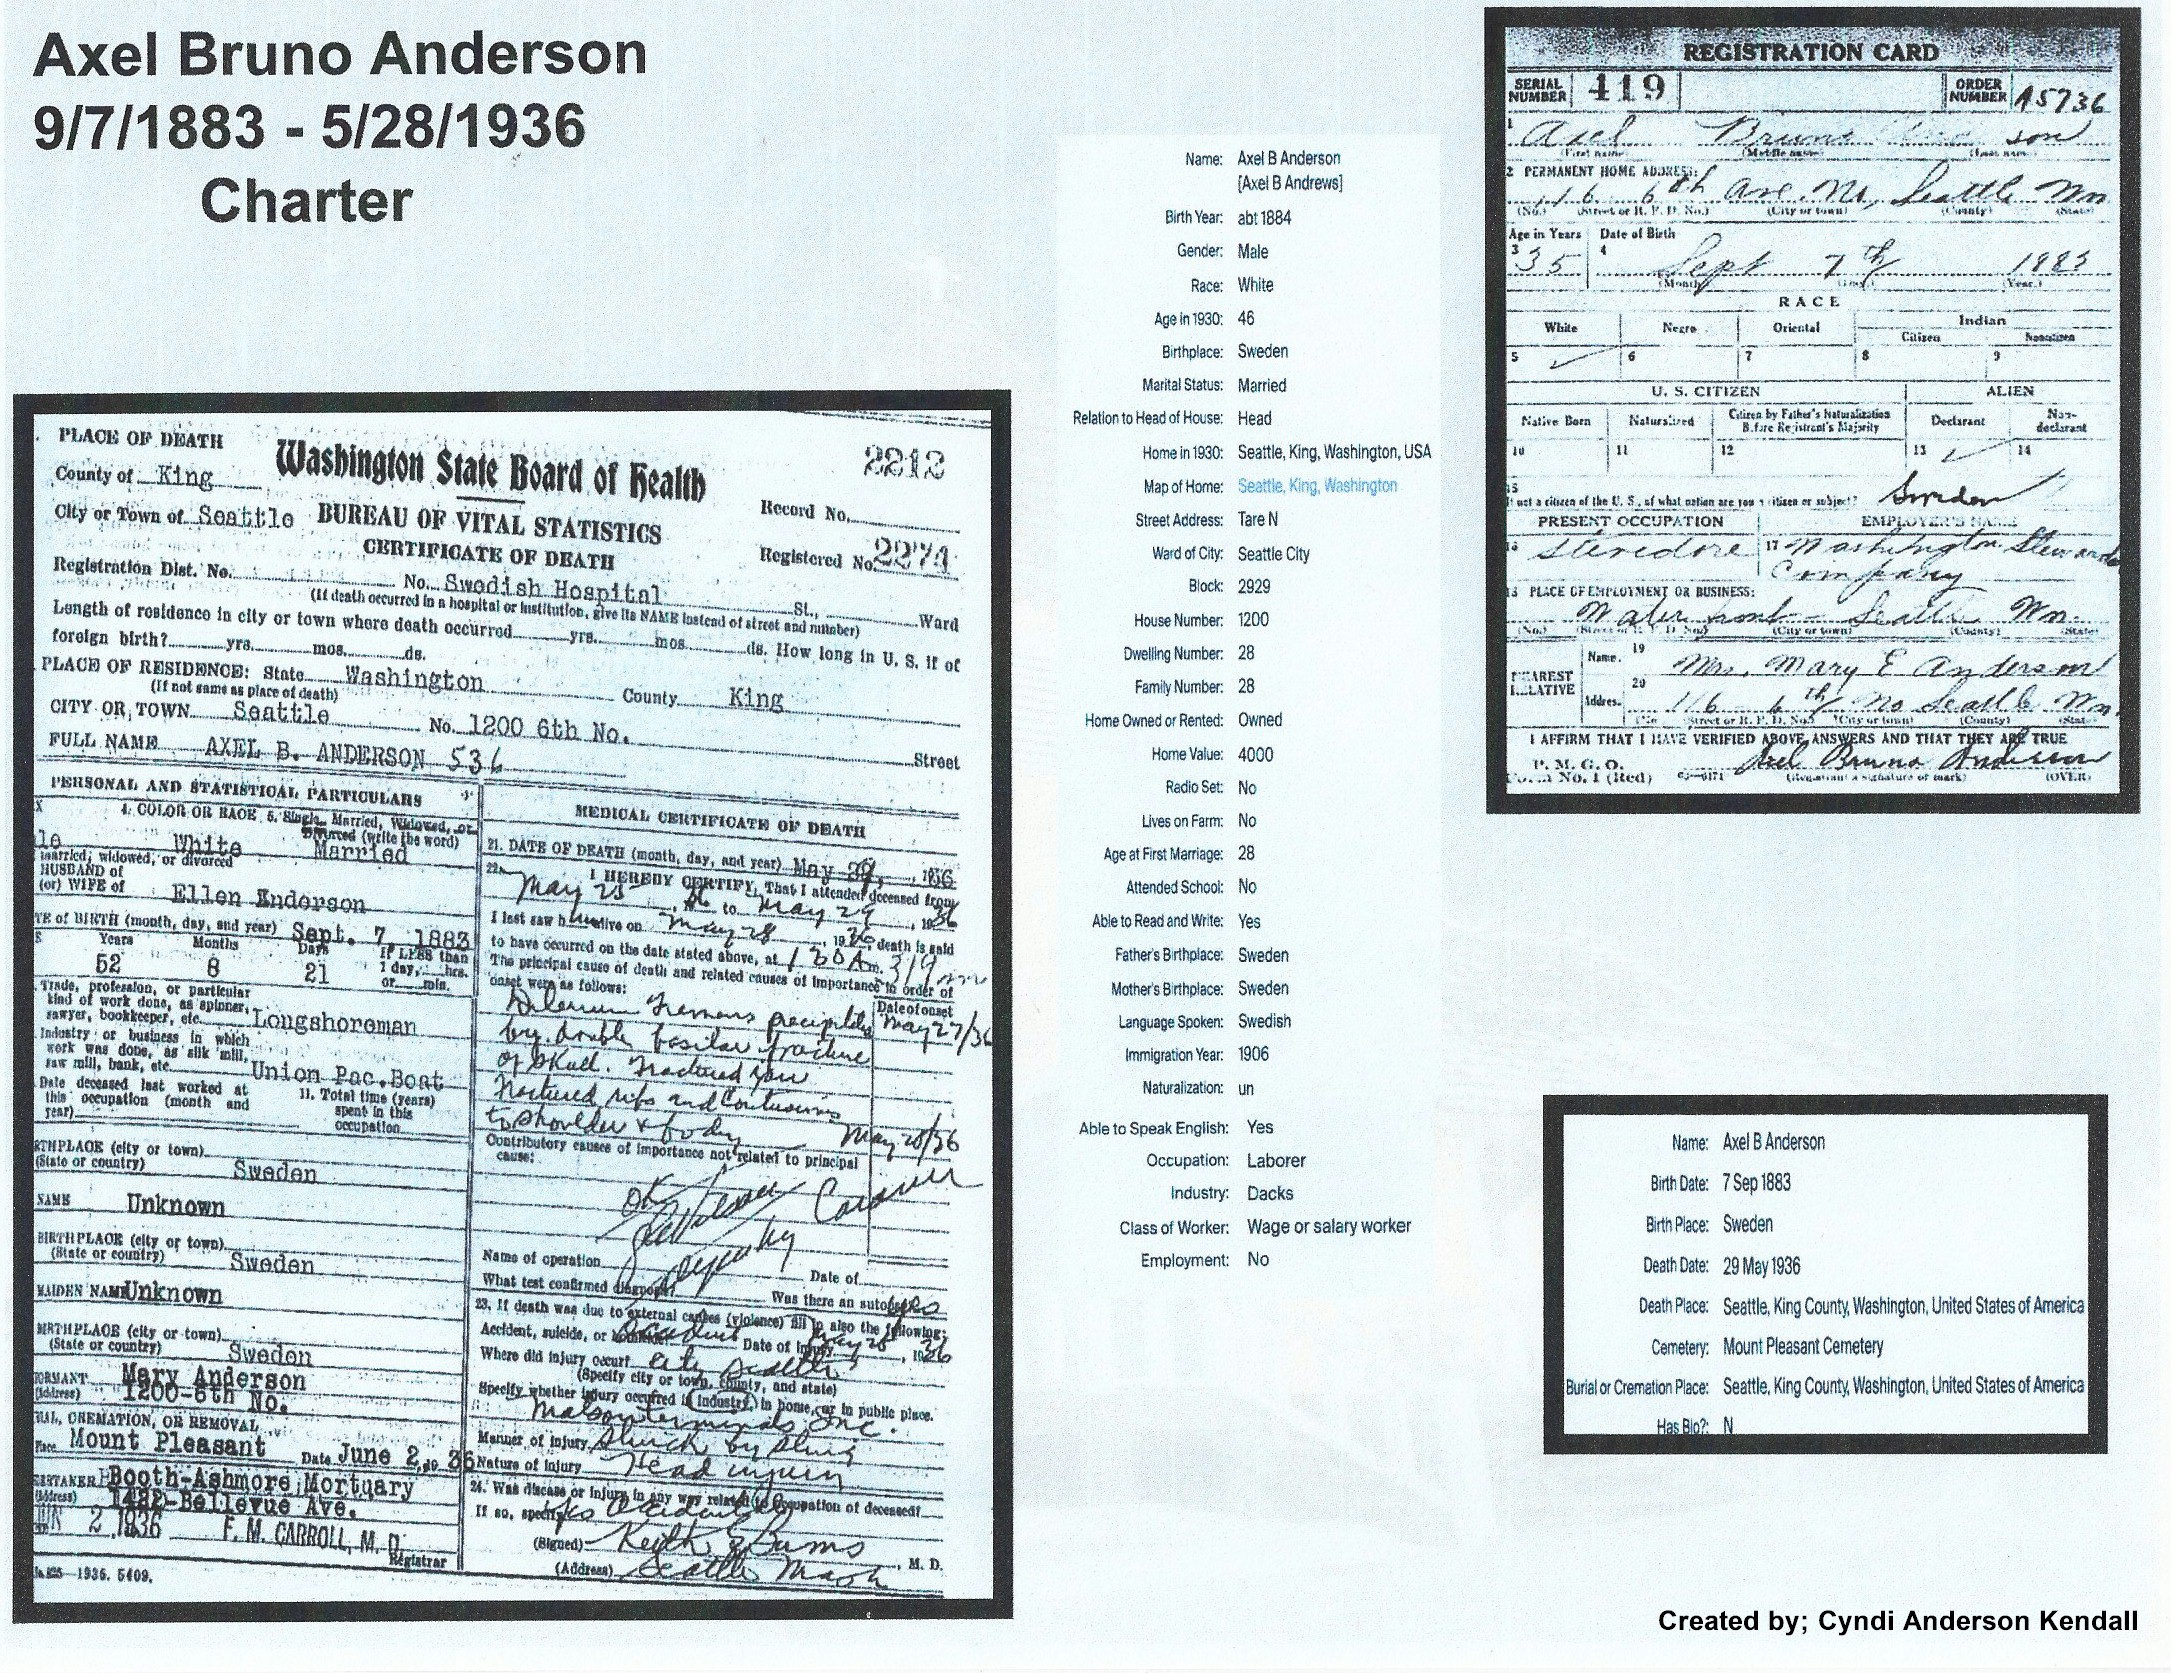 Axel Bruno Anderson
9/7/1883 - 5/28/1936
Charter
PLACE OF DEATH
County of King
City or Town of Seattle
Washington State Board of Health
BUREAU OF VITAL STATISTICS
CERTIFICATE OF DEATH
2212
Record No.
Registered No. 2274
Registration Dist. No. No. Swedish Hospital St., Ward
(If death occurred in a hospital or institution, give its NAME instead of street and number)
Length of residence in city or town where death occurred yrs. mos. ds. How long in U. S. if of
foreign birth? yrs. mos. ds.
PLACE OF RESIDENCE: State Washington County King
(If not same as place of death)
CITY OR TOWN Seattle No. 1200 6th No. Street
FULL NAME AXEL B. ANDERSON 536
PERSONAL AND STATISTICAL PARTICULARS
4. COLOR OR RACE 5. Single, Married, Widowed, or
Divorced (write the word)
White Married
married, widowed, or divorced
HUSBAND of
(or) WIFE of Ellen Anderson
TE of BIRTH (month, day, and year) Sept. 7, 1883
Years Months Days If LESS than
52 8 21 1 day, hrs.
or min.
Trade, profession, or particular
kind of work done, as spinner,
sawyer, bookkeeper, etc. Longshoreman
Industry or business in which
work was done, as silk mill,
saw mill, bank, etc. Union Pac.Boat
Date deceased last worked at
this occupation (month and
year)
11. Total time (years)
spent in this
occupation
RTHPLACE (city or town)
(State or country) Sweden
NAME Unknown
BIRTHPLACE (city or town)
(State or country) Sweden
MAIDEN NAME Unknown
BIRTHPLACE (city or town)
(State or country) Sweden
ORMANT Mary Anderson
(Address) 1200-6th No.
IAL, CREMATION, OR REMOVAL
Place Mount Pleasant Date June 2, 19 36
ERTAKER Booth-Ashmore Mortuary
(Address) 1422-Bellevue Ave.
UN 2 1936 F. M. CARROLL, M. D.
Registrar
1936. 5409.
MEDICAL CERTIFICATE OF DEATH
21. DATE OF DEATH (month, day, and year) May 1936
22. I HEREBY CERTIFY, That I attended deceased from
May 25 36 to May 29, 1936
I last saw h alive on May 28, 1936, death is said
to have occurred on the date stated above, at 1 30 A m.
The principal cause of death and related causes of importance in order of
onset were as follows:
Date of onset
Delerium Tremens May 27/36
by double basilar fracture
of skull. Fractured jaw
Fractured ribs and Contusions
to shoulder & body May 28/36
Contributory causes of importance not related to principal
cause:
OK Coroner
Deputy
Name of operation Date of
What test confirmed diagnosis? Was there an autopsy? yes
23. If death was due to external causes (violence) fill in also the following:
Accident, suicide, or homicide? Accident Date of injury May 25, 1936
Where did injury occur? City Seattle
(Specify city or town, county, and state)
Specify whether injury occurred in industry, in home, or in public place.
Inc.
Manner of injury Struck by sling
Nature of injury Head injury
24. Was disease or injury in any way related to occupation of deceased?
If so, specify
(Signed) Keith M. D.
(Address) Seattle Wash
Name: Axel B Anderson
[Axel B Andrews]
Birth Year: abt 1884
Gender: Male
Race: White
Age in 1930: 46
Birthplace: Sweden
Marital Status: Married
Relation to Head of House: Head
Home in 1930: Seattle, King, Washington, USA
Map of Home: Seattle, King, Washington
Street Address: Tare N
Ward of City: Seattle City
Block: 2929
House Number: 1200
Dwelling Number: 28
Family Number: 28
Home Owned or Rented: Owned
Home Value: 4000
Radio Set: No
Lives on Farm: No
Age at First Marriage: 28
Attended School: No
Able to Read and Write: Yes
Father's Birthplace: Sweden
Mother's Birthplace: Sweden
Language Spoken: Swedish
Immigration Year: 1906
Naturalization: un
Able to Speak English: Yes
Occupation: Laborer
Industry: Dacks
Class of Worker: Wage or salary worker
Employment: No
REGISTRATION CARD
SERIAL NUMBER 419 ORDER NUMBER A5736
1 Axel Bruno son
(First name) (Middle name) (Last name)
2 PERMANENT HOME ADDRESS:
116 6th Ave. No, Seattle Wn
(No.) (Street or R. F. D. No.) (City or town) (County) (State)
Age in Years Date of Birth
3 35 4 Sept 7th 1883
(Month) (Day.) (Year.)
RACE
White Negro Oriental Indian
Citizen Noncitizen
5 6 7 8 9
U. S. CITIZEN ALIEN
Native Born Naturalized Citizen by Father's Naturalization Before Registrant's Majority Declarant Non-declarant
10 11 12 13 14
15
If not a citizen of the U. S., of what nation are you a citizen or subject? Sweden
PRESENT OCCUPATION EMPLOYER'S NAME
16 Stevedore 17 Washington
Company
18 PLACE OF EMPLOYMENT OR BUSINESS:
Water front - Seattle Wn.
(No.) (Street or R. F. D. No.) (City or town) (County) (State)
NEAREST RELATIVE
Name. 19 Mrs. Mary E Anderson
Address. 20 116 6th No Seattle Wn.
(No.) (Street or R. F. D. No.) (City or town) (County) (State)
I AFFIRM THAT I HAVE VERIFIED ABOVE ANSWERS AND THAT THEY ARE TRUE
P. M. G. O.
Form No. 1 (Red) Axel Bruno Anderson
(Registrant's signature or mark) (OVER)
Name: Axel B Anderson
Birth Date: 7 Sep 1883
Birth Place: Sweden
Death Date: 29 May 1936
Death Place: Seattle, King County, Washington, United States of America
Cemetery: Mount Pleasant Cemetery
Burial or Cremation Place: Seattle, King County, Washington, United States of America
Has Bio?: N
Created by; Cyndi Anderson Kendall